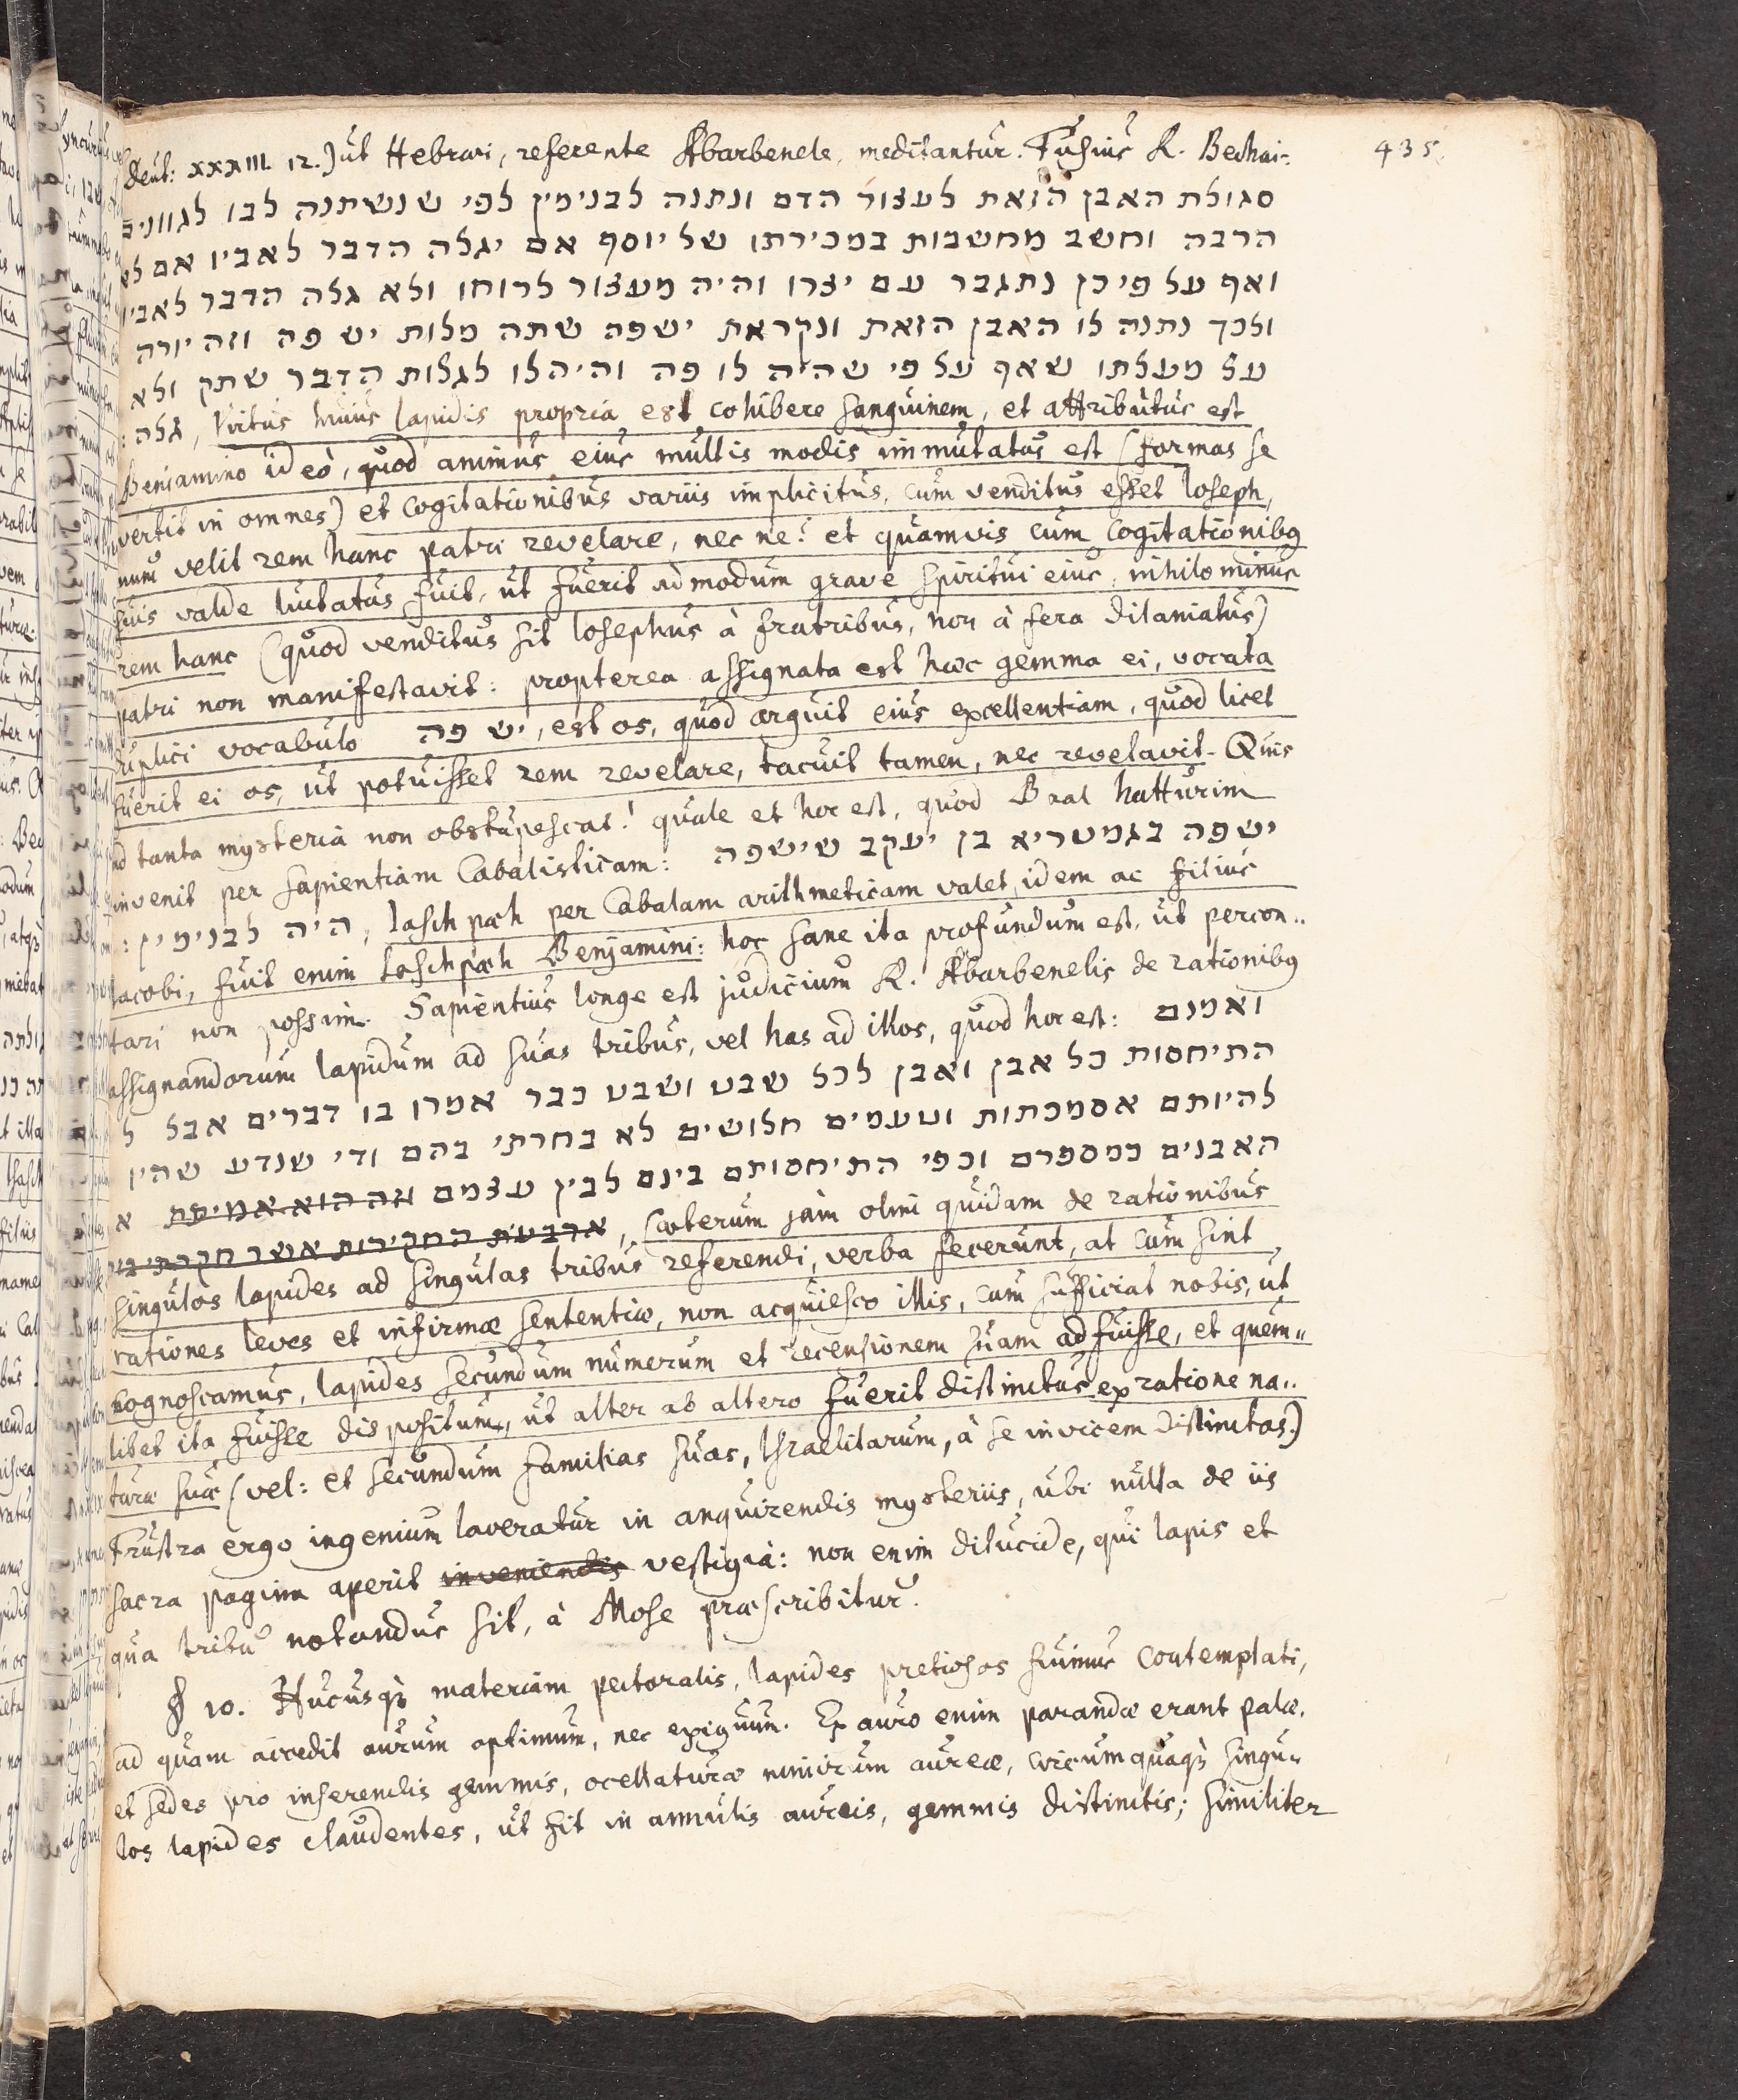 435.
Deut: XXXIII. 12.) ut Hebræi, referente Abarbenele, meditantur. Fusius R. Bechai:
סגולת האבן הזאת לעצור הדם ונתנה לבנימין לפי שנשתנה לבו לגוונים
הרבה וחשב מחשבות במכירתו של יוסף אם יגלה הדבר לאביו אם לא
ואף על פי כן נתגבר עם יצרו והיה מעצור לרוחו ולא גלה הדבר לאביו
ולכך נתנה לו האבן הזאת ונקראת ישפה שתה מלות יש פה וזה יורה
על מעלתו שאף על פי שהיה לו פה והיה לו לגלות הדבר שתק ולא
גלה: , Virtus huius lapidis propria est cohibere sanguinem, et attributus est
Beniamino ideò, quod animus eius multis modis immutatus est (formas se
vertit in omnes) et cogitationibus variis implicitus, cum venditus esset Ioseph,
num velit rem hanc patri revelare, nec ne? et quamvis cum cogitationibq
suis valde luctatus fuit, ut fuerit admodum grave spiritui eius, nihilominus
rem hanc (quod venditus sit Iosephus à fratribus, non à fera dilaniatus)
patri non manifestavit: propterea assignata est hæc gemma ei, vocata
duplici vocabulo יש פה, est os, quod arguit eius excellentiam, quod licet
fuerit ei os, ut potuisset rem revelare, tacuit tamen, nec revelavit. Quis
ad tanta mysteria non obstupescat! quale et hoc est, quod Baal hatturim
invenit per sapientiam Cabalisticam: ישפה בגמטריא בן יעקב שישפה
היה לבנימין: , Iaschpæh per Cabalam arithmeticam valet idem ac filius
Iacobi, fuit enim Iaschpæh Benjamini: hoc sane ita profundum est, ut percon..
tari non possim. Sapientius longe est judicium R. Abarbenelis de rationibq
assignandorum lapidum ad suas tribus, vel has ad illos, quod hoc est: ואמנם
התיחסות כל אבן ואבן לכל שבט ושבט כבר אמרו בו דברים אבל ל
להיותם אסמכתות וטעמים חלושים לא בחרתי בהם ודי שנדע שהיו
האבנים כמספרם וכפי התיחסותם בינם לבין עצמם וזה הוא אמיתת א
ארבעת החקירות אשר חקרתי בזה , Cæterum jam olim quidam de rationibus
singulos lapides ad singulas tribus referendi, verba fecerunt, at cum sint
rationes leves et infirmæ sententiæ, non acquiesco illis, cum sufficiat nobis, ut
cognoscamus, lapides secundum numerum et recensionem suam adfuisse, et quem..
libet ita fuisse dispositum, ut alter ab altero fuerit distinctus ex ratione na..
turæ suæ (vel: et secundum familias suas, Israelitarum, à se invicem distinctas.)
Frustra ergo ingenium laveratur in anquirendis mysteriis, ubi nulla de iis
sacra pagina aperit inveniendis vestigia: non enim dilucide, qui lapis et
qua tribu notandus sit, à Mose præscribitur.
§ 10. Hucusq materiam pectoralis, lapides pretiosos fuimus contemplati,
ad quam accedit aurum optimum, nec exiguum. Ex auro enim parandæ erant palæ,
et sedes pro inserendis gemmis, ocellaturæ nimirum aureæ, circumquaq singu..
los lapides claudentes, ut fit in annulis aureis, gemmis distinctis; similiter